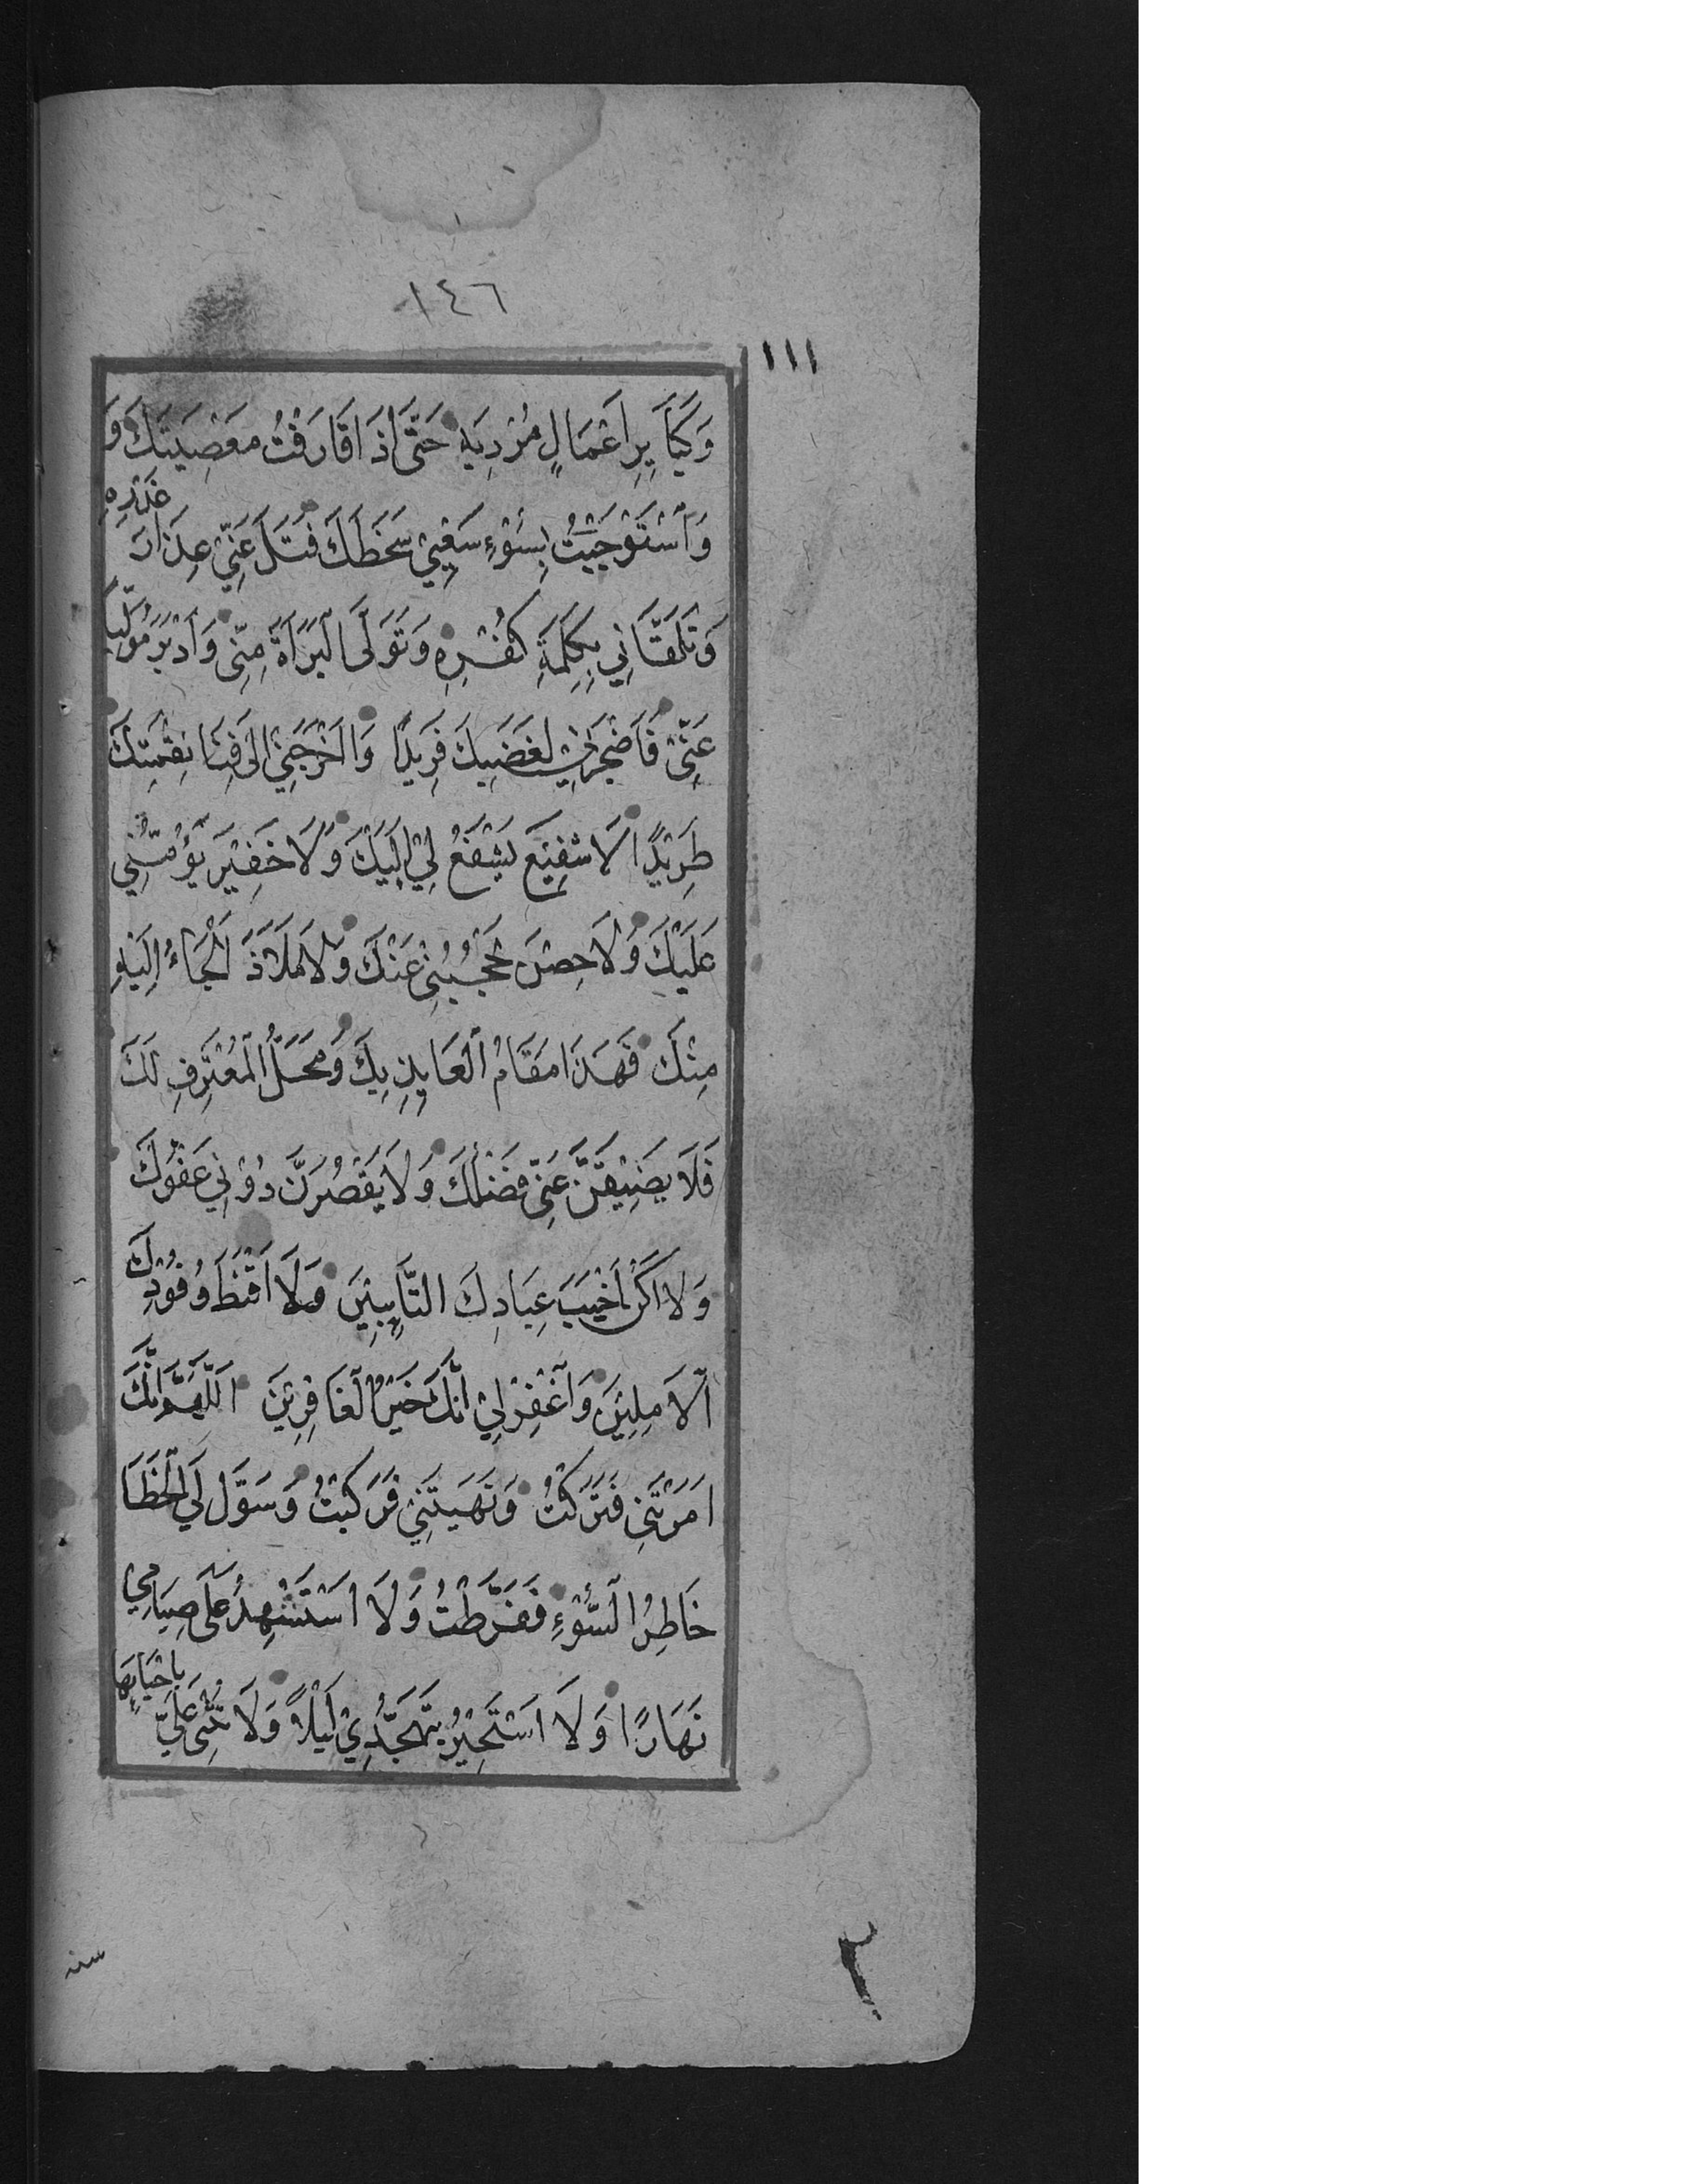 ١٤٦
١١١
وَكَبَآيِرِ اَعْمَالٍ مُرْدِيَهِ حَتَّىٰ اِذَا قَارَفْتُ مَعْصِيَتَكَ وَ
وَاَسْتَوْجَبْتُ بِسُوْءِ سَعْيِيْ سَخَطَكَ فَتَلَ عَنِّيْ عِذَارَ غَدْرِهِ
وَتَلَقَّانِي بِكَلِمَةِ كُفْرِهِ وَتَوَلَّى الْبَرَاۤءَةَ مِنِّي وَاَدْبَرَ مُوَلِّيًا
عَنِّيْ فَاَضْجَرَنِيْ لِغَضَبِكَ فَرِيْدًا وَاَخْرَجَنِيْ اِلَىٰ فِنَا نِقْمَتِكَ
طَرِيْدًا لَا شَفِيْعَ يَشْفَعُ لِيْ اِلَيْكَ وَلَا خَفِيْرَ يُؤْمِنُنِي
عَلَيْكَ وَلَا حِصْنَ يَحْجُبُنِي عَنْكَ وَلَا مَلَاذَ اَلْجَاءُ اِلَيْهِ
مِنْكَ فَهَذَا مَقَامُ الْعَايِذِ بِكَ وَمَحَلُّ الْمُعْتَرِفِ لَكَ
فَلَا يَضِيْقَنَّ عَنِّي فَضْلُكَ وَلَا يَقْصُرَنَّ دُوْنِي عَفْوُكَ
وَلَا اَكُنْ اَخْيَبَ عِبَادِكَ التَّايِبِيْنَ وَلَا اَقْنَطَ وُفُوْدِكَ
الْاٰمِلِيْنَ وَاغْفِرْ لِيْ اِنَّكَ خَيْرُ الْغَافِرِيْنَ اَللّٰهُمَّ اِنَّكَ
اَمَرْتَنِي فَتَرَكْتُ وَنَهَيْتَنِيْ فَرَكِبْتُ وَسَوَّلَ لِيَ الْخَطَا
خَاطِرُ السُّوْءِ فَفَرَّطْتُ وَلَا اَسْتَشْهِدُ عَلَى صِيَامِي
نَهَارًا وَلَا اَسْتَجِيْرُ بِتَهَجُّدِيْ لَيْلًا وَلَا تُثْنِى عَلَيَّ بِاِحْيَايِهَا
سنه